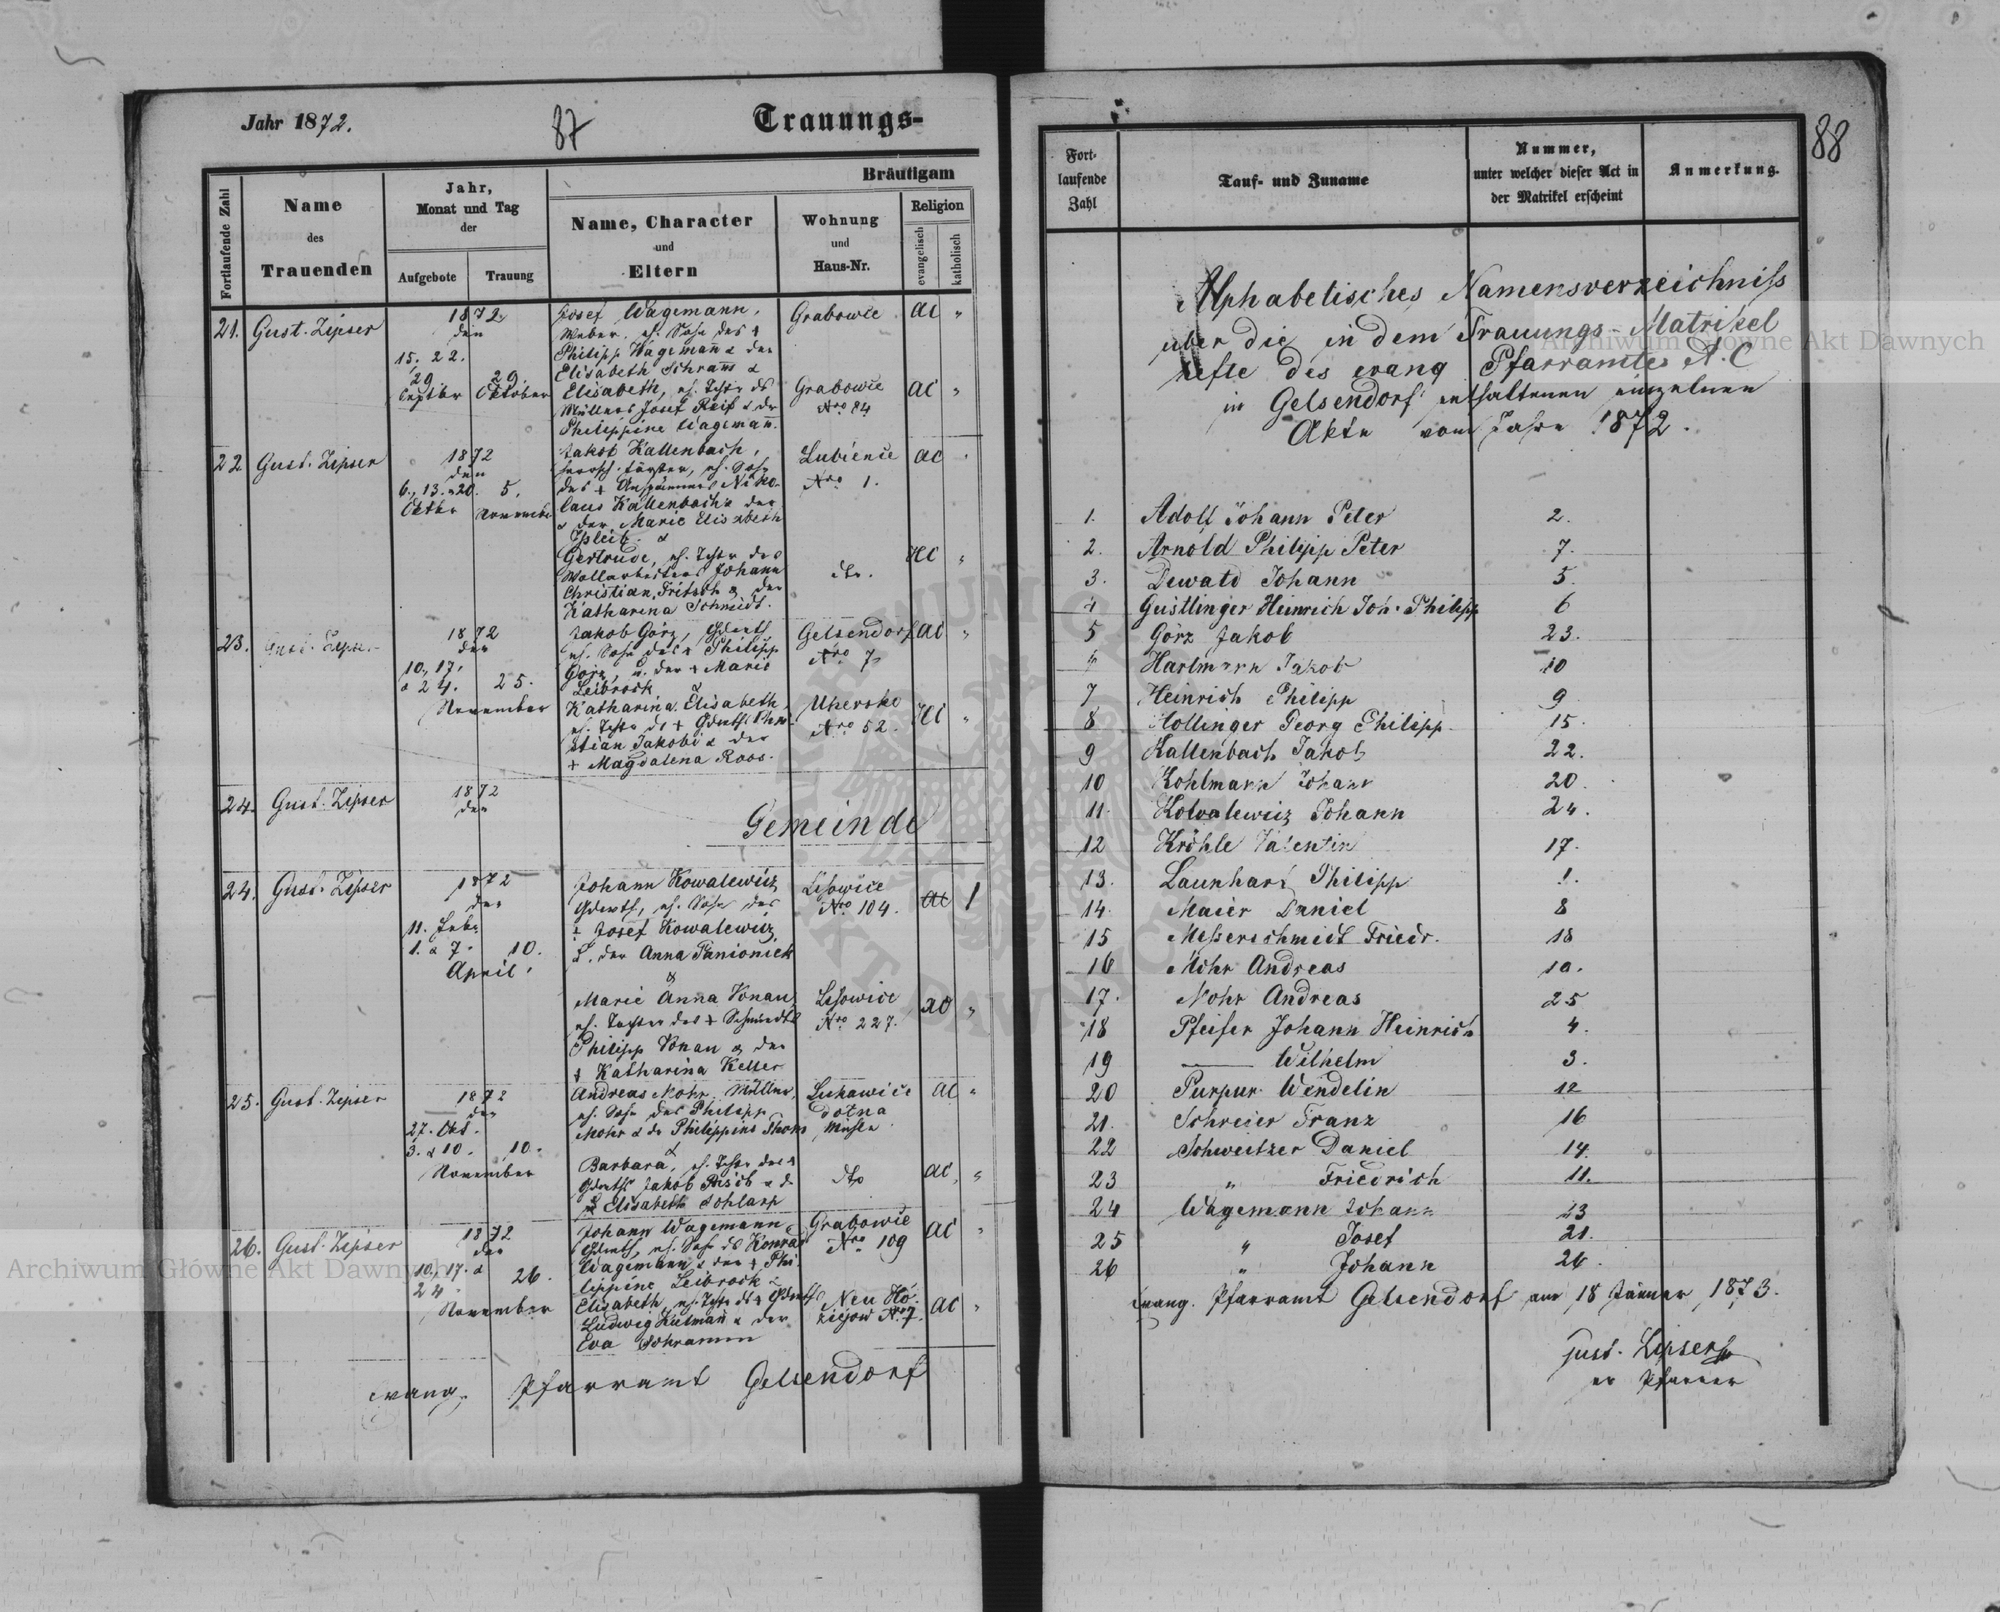 Jahr 1872.
87
Trauungs-
Fortlaufende Zahl
Name
des
Trauenden
Jahr,
Monat und Tag
der
Aufgebote
Trauung
Bräutigam
Name, Character
und
Eltern
Wohnung
und
Haus-Nr.
Religion
evangelisch
katholisch
21. Gust. Zipser
1872
den
15. 22.
29 29
Septbr October
Josef Wagemann,
Weber, eh. Sohn des +
Philipp Wagemann & der
Elisabeth Schram &
Elisabeth, eh. Tochter ds
Müllers Josef Reif & der
Philippine Wagemann.
Grabowce AC "
Grabowce AC "
Nro 84
22 Gust. Zipser
1872
den
6., 13. & 20. 5.
Oktbr November
Jakob Kallenbach,
herrsch. Förster, eh. Sohn
des + Niko-
laus Kallenbach & der
& der Marie Elisabeth
&
Gertrude, eh. Tochter des
Johann
Christian Fritsch & der
Katharina Schmidt.
Lubience AC "
Nro 1.
dto. HC "
23. Gust. Zipser
1872
den
10., 17.
& 24. 25.
November
Jakob Görz, Gdwth
eh. Sohn des + Philipp
Görz, u. der + Marie
Leibrock &
Katharina Elisabeth,
eh. Tochter ds + Gdwths Chri-
stian Jakobi & der
+ Magdalena Roos.
Gelsendorf AC "
Nro 7
Uhersko HC "
Nro 52.
24. Gust. Zipser
1872
den
Gemeinde
24. Gust. Zipser
1872
den
11. Febr
1. & 7. 10.
April.
Johann Kowalewicz
Gdwth, eh. Sohn des
+ Josef Kowalewicz
& der Anna Panionick
&
Marie Anna Vonau,
eh. Tochter des + Schmiedts
Philipp Vonau & der
+ Katharina Keller
Lisowice AC 1
Nro 104.
Lisowice AC "
Nro 227.
25. Gust. Zipser
1872
den
27. Okt.
3. & 10. 10.
November
Andreas Mohr, Müller,
eh. Sohn des Philipp
Mohr & der Philippine Thom
&
Barbara, eh. Tochter des +
Gdwths Jakob Risch & d.
+ Elisabeth Schlarp
Lukawice AC "
dolna
Mühle
dto AC "
26. Gust. Zipser
1872
den
10., 17. & 26.
24.
November
Johann Wagemann
Gdwth, eh. Sohn ds Konrad
Wagemann & der + Phi-
lippine Leibrock &
Elisabeth, eh. Tochter ds + Gdwths
Ludwig Kulmann & der
Eva Schramm
Grabowce AC "
Nro 109
Neu
Nro 7. AC "
evang. Pfarramt Gelsendorf
88
Fort-
laufende
Zahl
Tauf- und Zuname
Nummer,
unter welcher dieser Act in
der Matrikel erscheint
Anmerkung.
Alphabetisches Namensverzeichniss
über die in dem Trauungs-Matrikel
hefte des evang Pfarramtes A. C
in Gelsendorf enthaltenen einzelnen
Akte vom Jahre 1872.
1. Adolf Johann Peter 2.
2. Arnold Philipp Peter 7.
3. Dewald Johann 5.
4 Geistlinger Heinrich Joh. Philipp 6
5 Görz Jakob 23.
6 Hartmann Jakob 10
7 Heinrich Philipp 9
8 Hollinger Georg Philipp 15.
9 Kallenbach Jakob 22.
10 Kohlmann Johann 20.
11. Kowalewicz Johann 24.
12 Kröhle Valentin 17.
13. Launhard Philipp 1.
14. Maier Daniel 8
15 Messerschmidt Friedr. 18
16 Mohr Andreas 10.
17. Mohr Andreas 25
18 Pfeifer Johann Heinrich 4.
19 — Wilhelm 3.
20 Purpur Wendelin 12
21. Schreier Franz 16
22 Schweitzer Daniel 14.
23 " Friedrich 11.
24 Wagemann Johann 13
25 " Josef 21.
26 " Johann 26.
evang. Pfarramt Gelsendorf am 18 Jänner 1873.
Gust. Zipser
ev Pfarrer
Archiwum Główne Akt Dawnych
Archiwum Główne Akt Dawnych
ARCHIWUM GŁÓWNE AKT DAWNYCH